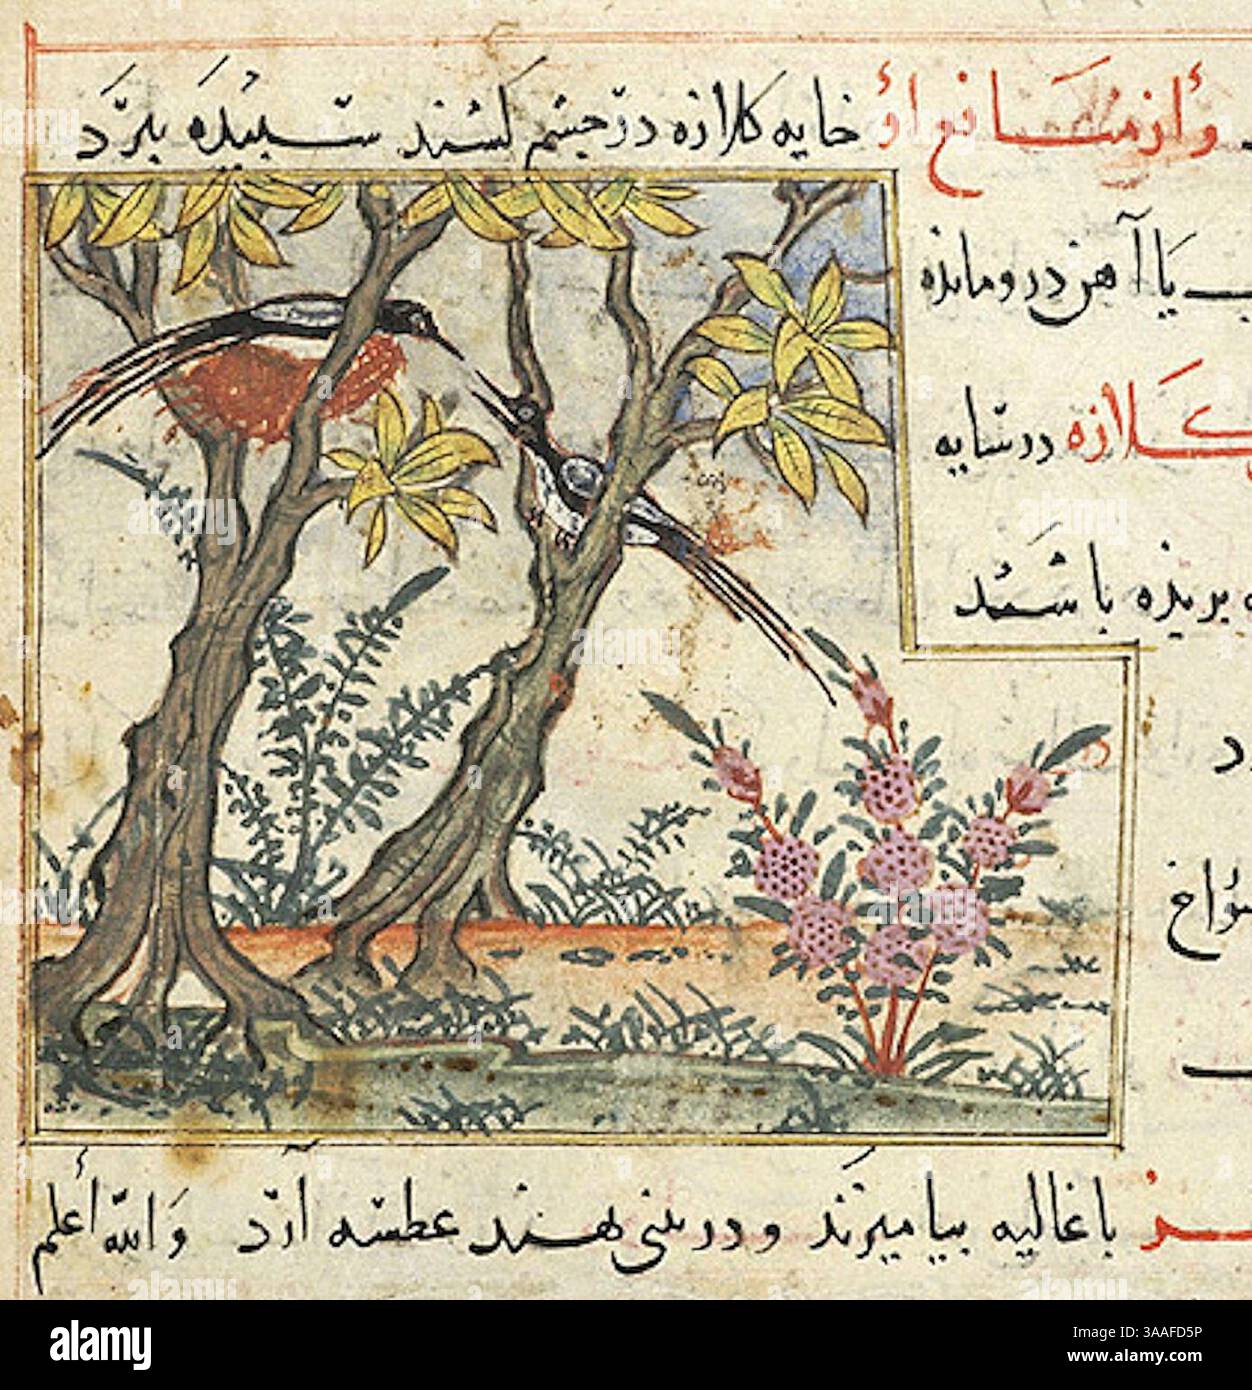 وأز منافع أو خایه کلازه در چشم کشند سپیده ببرد
یا آهن درو مانده
کلازه در سایه
بریده باشند
د
سوراخ
با غالیه بیامیزند و در بینی نهند عطسه آرد والله أعلم
alamy
Image ID: 3AAFD5P
www.alamy.com